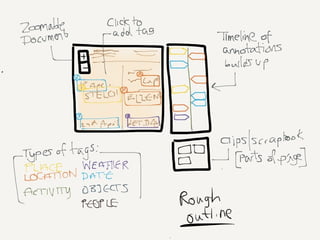 Zoomable
Document
Click to
add tag
Timeline of
annotations
builds up
Clips/scrapbook
[parts of page]
Types of tags:
PLACE WEATHER
LOCATION DATE
ACTIVITY OBJECTS
PEOPLE
Rough
outline